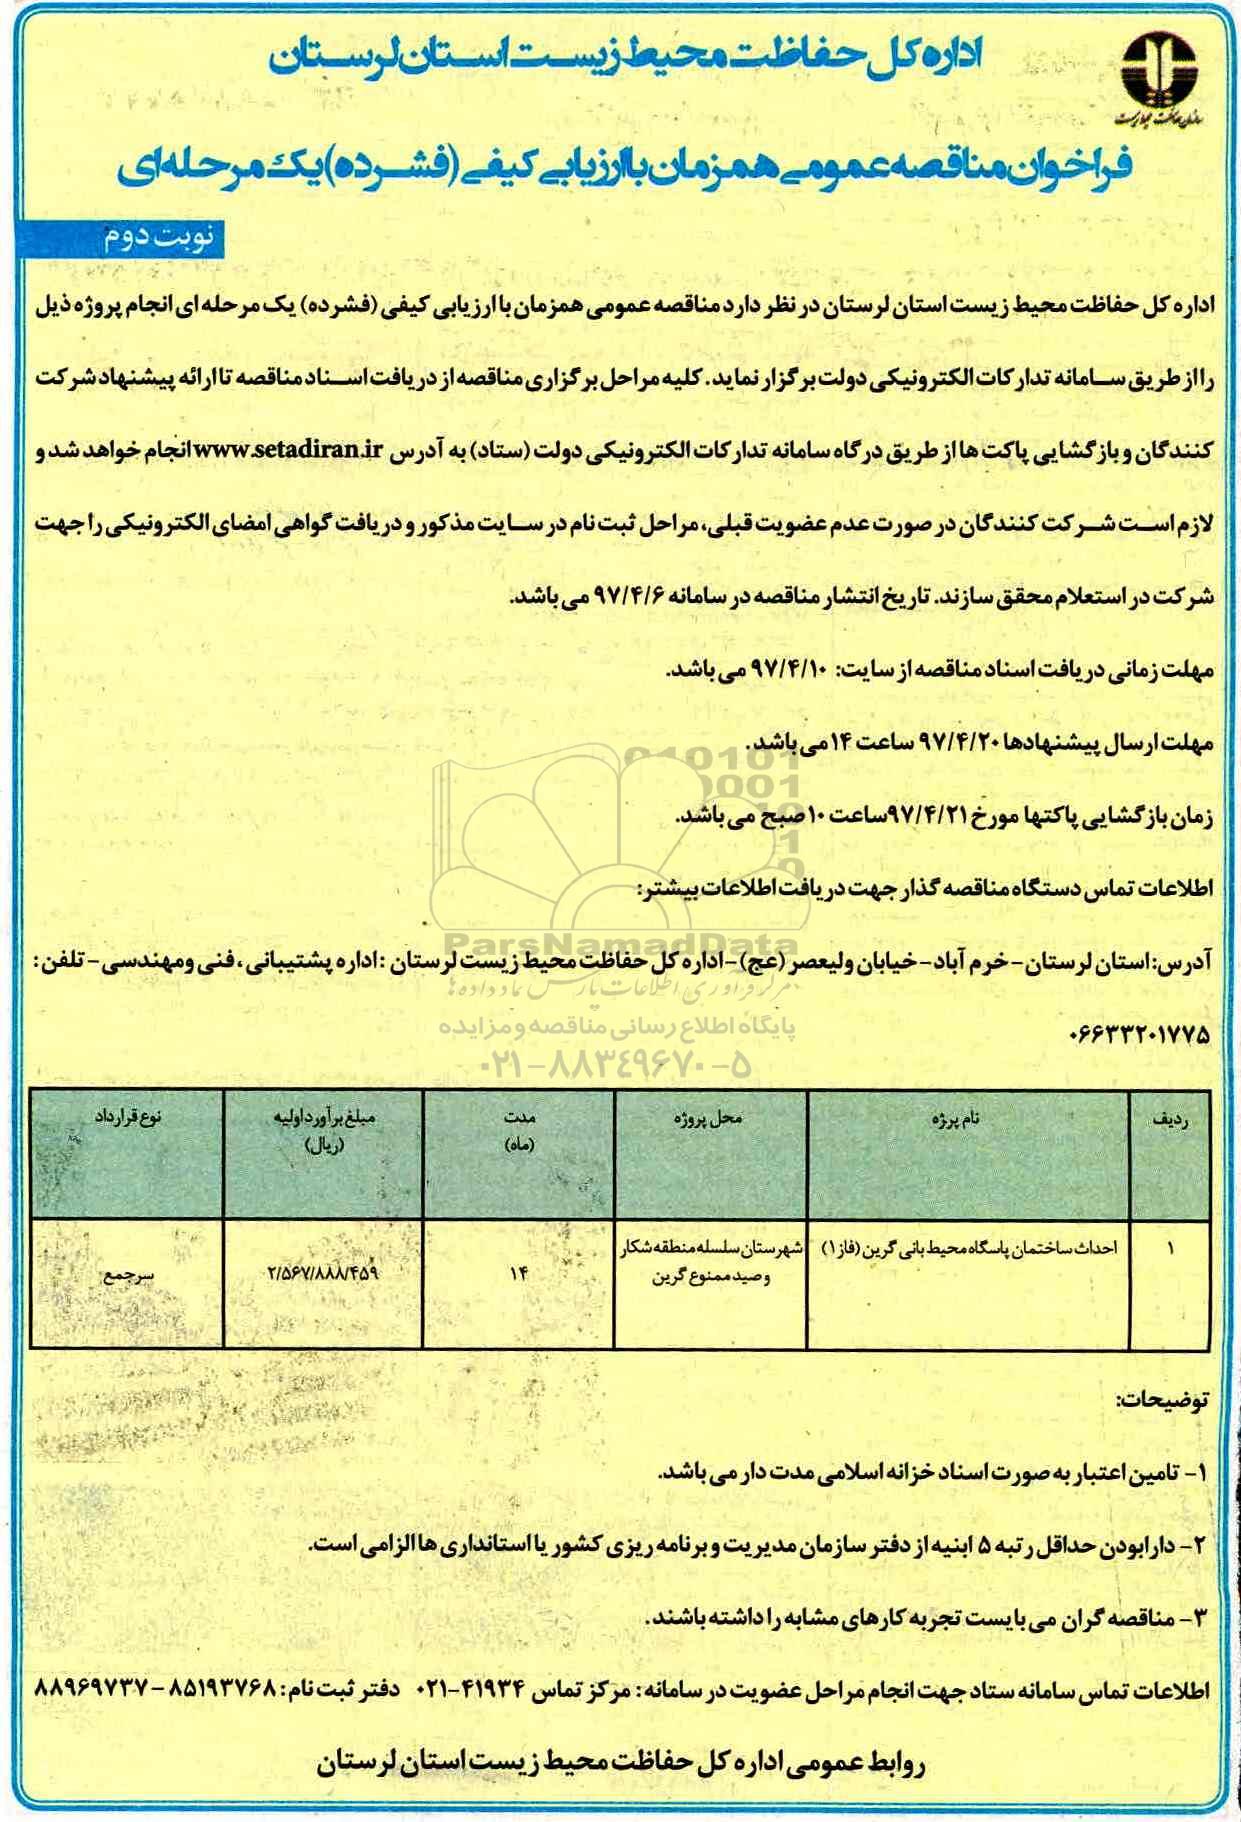 اداره کل حفاظت محیط زیست استان لرستان
سازمان حفاظت محیط زیست
فراخوان مناقصه عمومی همزمان با ارزیابی کیفی (فشرده) یک مرحله ای
نوبت دوم
اداره کل حفاظت محیط زیست استان لرستان در نظر دارد مناقصه عمومی همزمان با ارزیابی کیفی (فشرده) یک مرحله ای انجام پروژه ذیل
را از طریق سامانه تدارکات الکترونیکی دولت برگزار نماید. کلیه مراحل برگزاری مناقصه از دریافت اسناد مناقصه تا ارائه پیشنهاد شرکت
کنندگان و بازگشایی پاکت ها از طریق درگاه سامانه تدارکات الکترونیکی دولت (ستاد) به آدرس www.setadiran.ir انجام خواهد شد و
لازم است شرکت کنندگان در صورت عدم عضویت قبلی، مراحل ثبت نام در سایت مذکور و دریافت گواهی امضای الکترونیکی را جهت
شرکت در استعلام محقق سازند. تاریخ انتشار مناقصه در سامانه ۹۷/۴/۶ می باشد.
مهلت زمانی دریافت اسناد مناقصه از سایت: ۹۷/۴/۱۰ می باشد.
مهلت ارسال پیشنهادها ۹۷/۴/۲۰ ساعت ۱۴ می باشد.
زمان بازگشایی پاکتها مورخ ۹۷/۴/۲۱ ساعت ۱۰ صبح می باشد.
اطلاعات تماس دستگاه مناقصه گذار جهت دریافت اطلاعات بیشتر:
ParsNamadData
آدرس: استان لرستان - خرم آباد - خیابان ولیعصر (عج) - اداره کل حفاظت محیط زیست لرستان : اداره پشتیبانی ، فنی ومهندسی - تلفن :
مرکز فرآوری اطلاعات پارس نماد داده ها
پایگاه اطلاع رسانی مناقصه و مزایده
۰۶۶۳۳۲۰۱۷۷۵
۰۲۱-۸۸۳۴۹۶۷۰-۵
ردیف	نام پرژه	محل پروژه	مدت (ماه)	مبلغ برآورد اولیه (ریال)	نوع قرارداد
۱	احداث ساختمان پاسگاه محیط بانی گرین (فاز۱)	شهرستان سلسله منطقه شکار و صید ممنوع گرین	۱۴	۲/۵۶۷/۸۸۸/۴۵۹	سرجمع
توضیحات:
۱- تامین اعتبار به صورت اسناد خزانه اسلامی مدت دار می باشد.
۲- دارابودن حداقل رتبه ۵ ابنیه از دفتر سازمان مدیریت و برنامه ریزی کشور یا استانداری ها الزامی است.
۳- مناقصه گران می بایست تجربه کارهای مشابه را داشته باشند.
اطلاعات تماس سامانه ستاد جهت انجام مراحل عضویت در سامانه : مرکز تماس ۴۱۹۳۴-۰۲۱ دفتر ثبت نام: ۸۵۱۹۳۷۶۸ - ۸۸۹۶۹۷۳۷
روابط عمومی اداره کل حفاظت محیط زیست استان لرستان